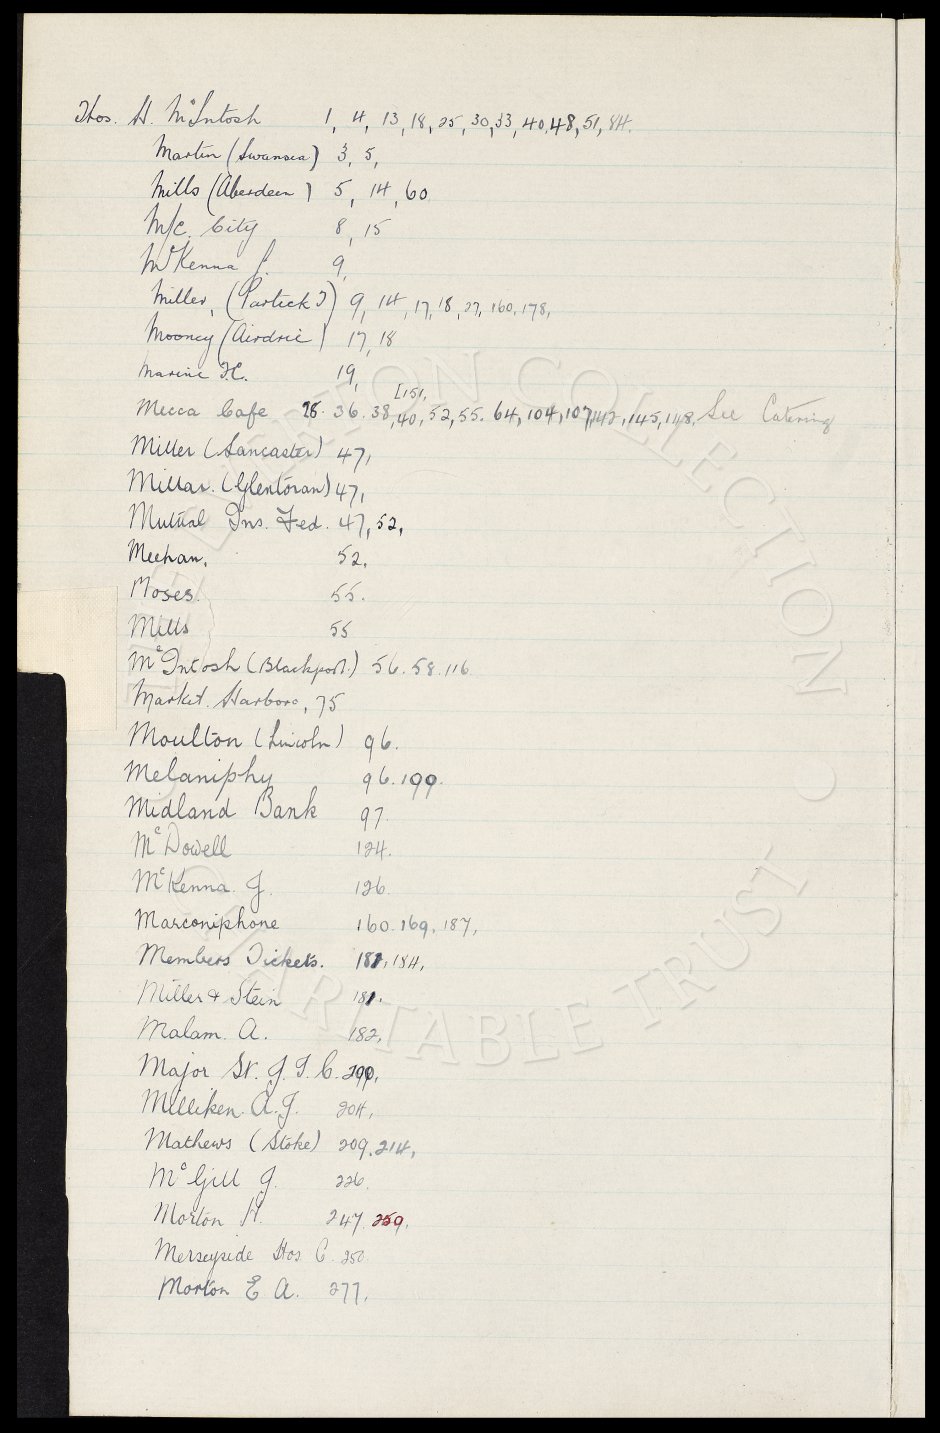 Thos. H. McIntosh 1, 4, 13, 18, 25, 30, 33, 40, 48, 51, 84.
Martin (Swansea) 3, 5,
Mills (Aberdeen) 5, 14, 60
M/c. City 8, 15
McKenna J. 9,
Miller, (Partick T) 9, 14, 17, 18, 27, 160, 178,
Mooney (Airdrie) 17, 18
Marine F.C. 19,
[151,
Mecca Cafe 25. 36. 38, 40, 52, 55. 64, 104, 107, 142, 145, 148, See Catering
Miller (Lancaster) 47,
Millar. (Glentoran) 47,
Mutual Ins. Fed. 47, 52,
Meehan, 52,
Moses. 55.
Mills 55
McIntosh (Blackpool.) 56. 58. 116
Market. Harboro, 75
Moulton (Lincoln) 96.
Melaniphy 96. 199.
Midland Bank 97.
McDowell 124.
McKenna. J. 126.
Marconiphone 160. 169, 187,
Members Tickets. 181, 184,
Miller & Stein 181.
Malam. A. 182,
Major St. J. I. C. 200,
Milliken. A. J. 204,
Mathews (Stoke) 209, 214,
McGill J. 226.
Morton H. 247. 259.
Merseyside Hos. C. 250.
Morton E A. 277,
EVERTON COLLECTION
CHARITABLE TRUST